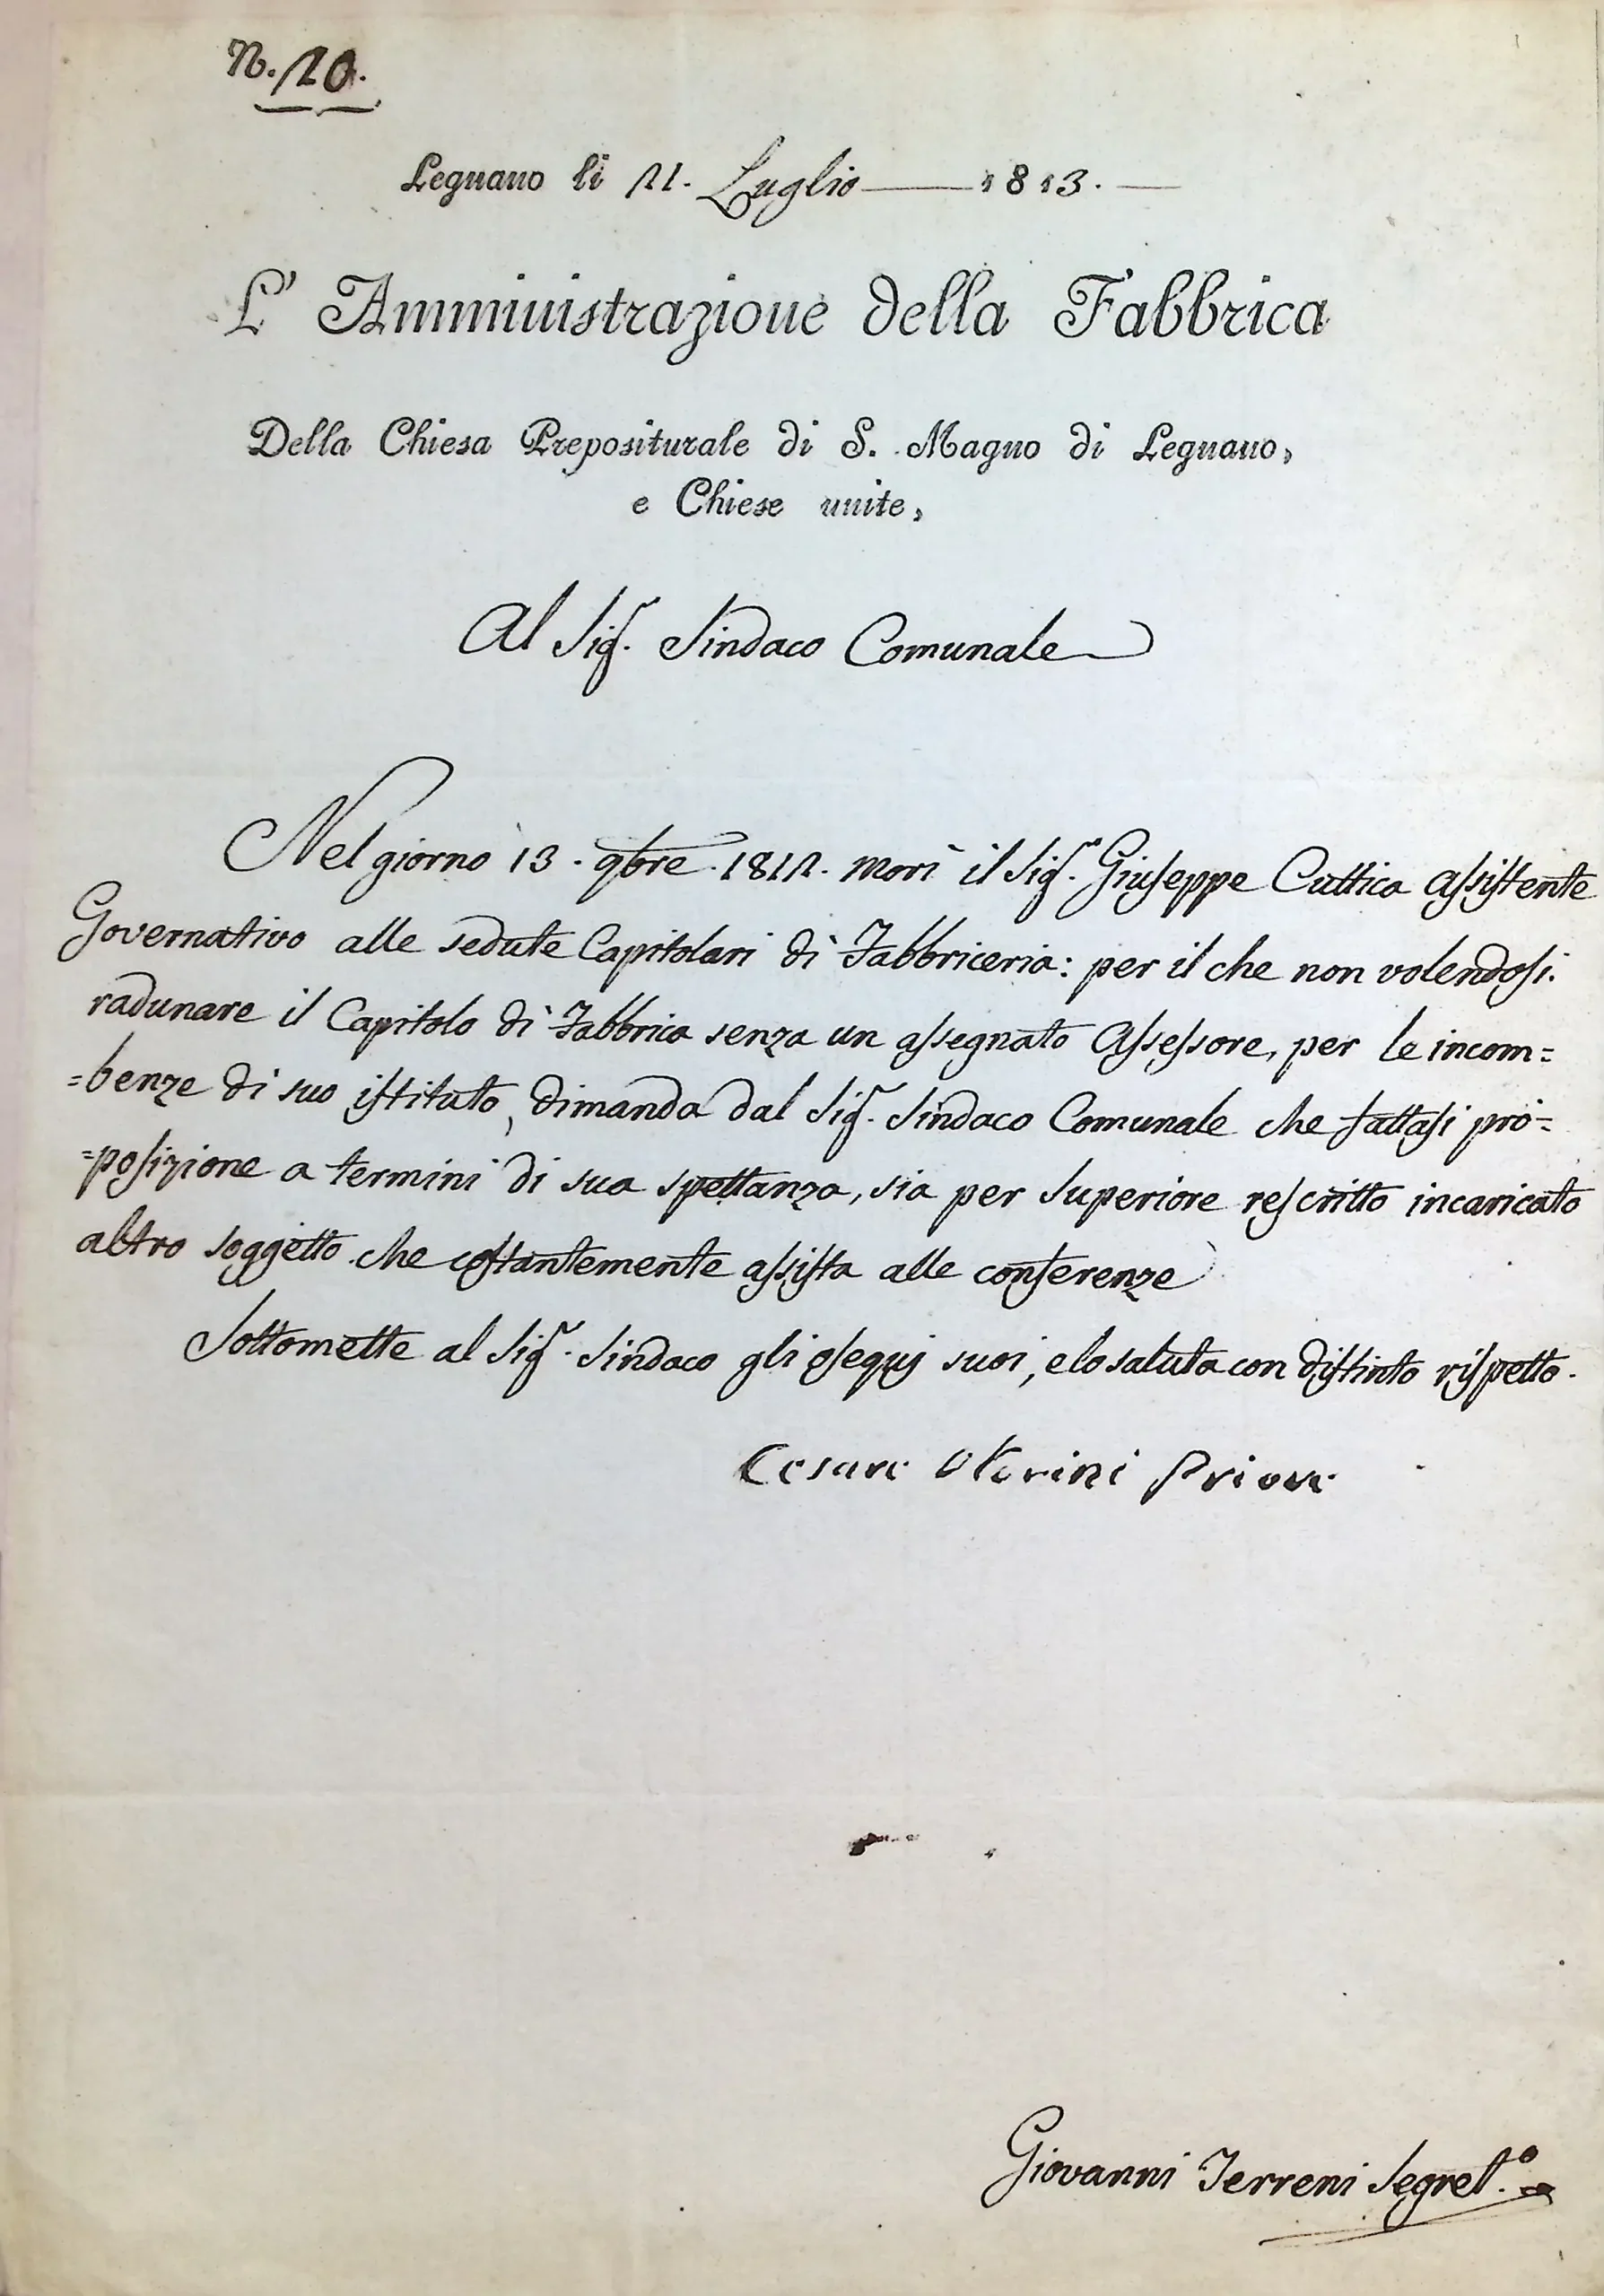 N. 20.
Legnano li 21. Luglio 1813.
L' Amministrazione della Fabbrica
Della Chiesa Prepositurale di S. Magno di Legnano,
e Chiese unite,
Al Sigr. Sindaco Comunale
Nel giorno 13. 9bre. 1812. morì il Sigr. Giuseppe Cuttica assistente
Governativo alle sedute Capitolari di Fabbriceria: per il che non volendosi
radunare il Capitolo di Fabbrica senza un assegnato Assessore, per le incom=
=benze di suo istituto, dimanda dal Sigr. Sindaco Comunale che fattasi pro=
=posizione a termini di sua spettanza, sia per Superiore rescritto incaricato
altro soggetto che costantemente assista alle conferenze
Sottomette al Sigr. Sindaco gli osequj suoi, e lo saluta con distinto rispetto.
Cesare Priore
Giovanni Terreni Segreto.